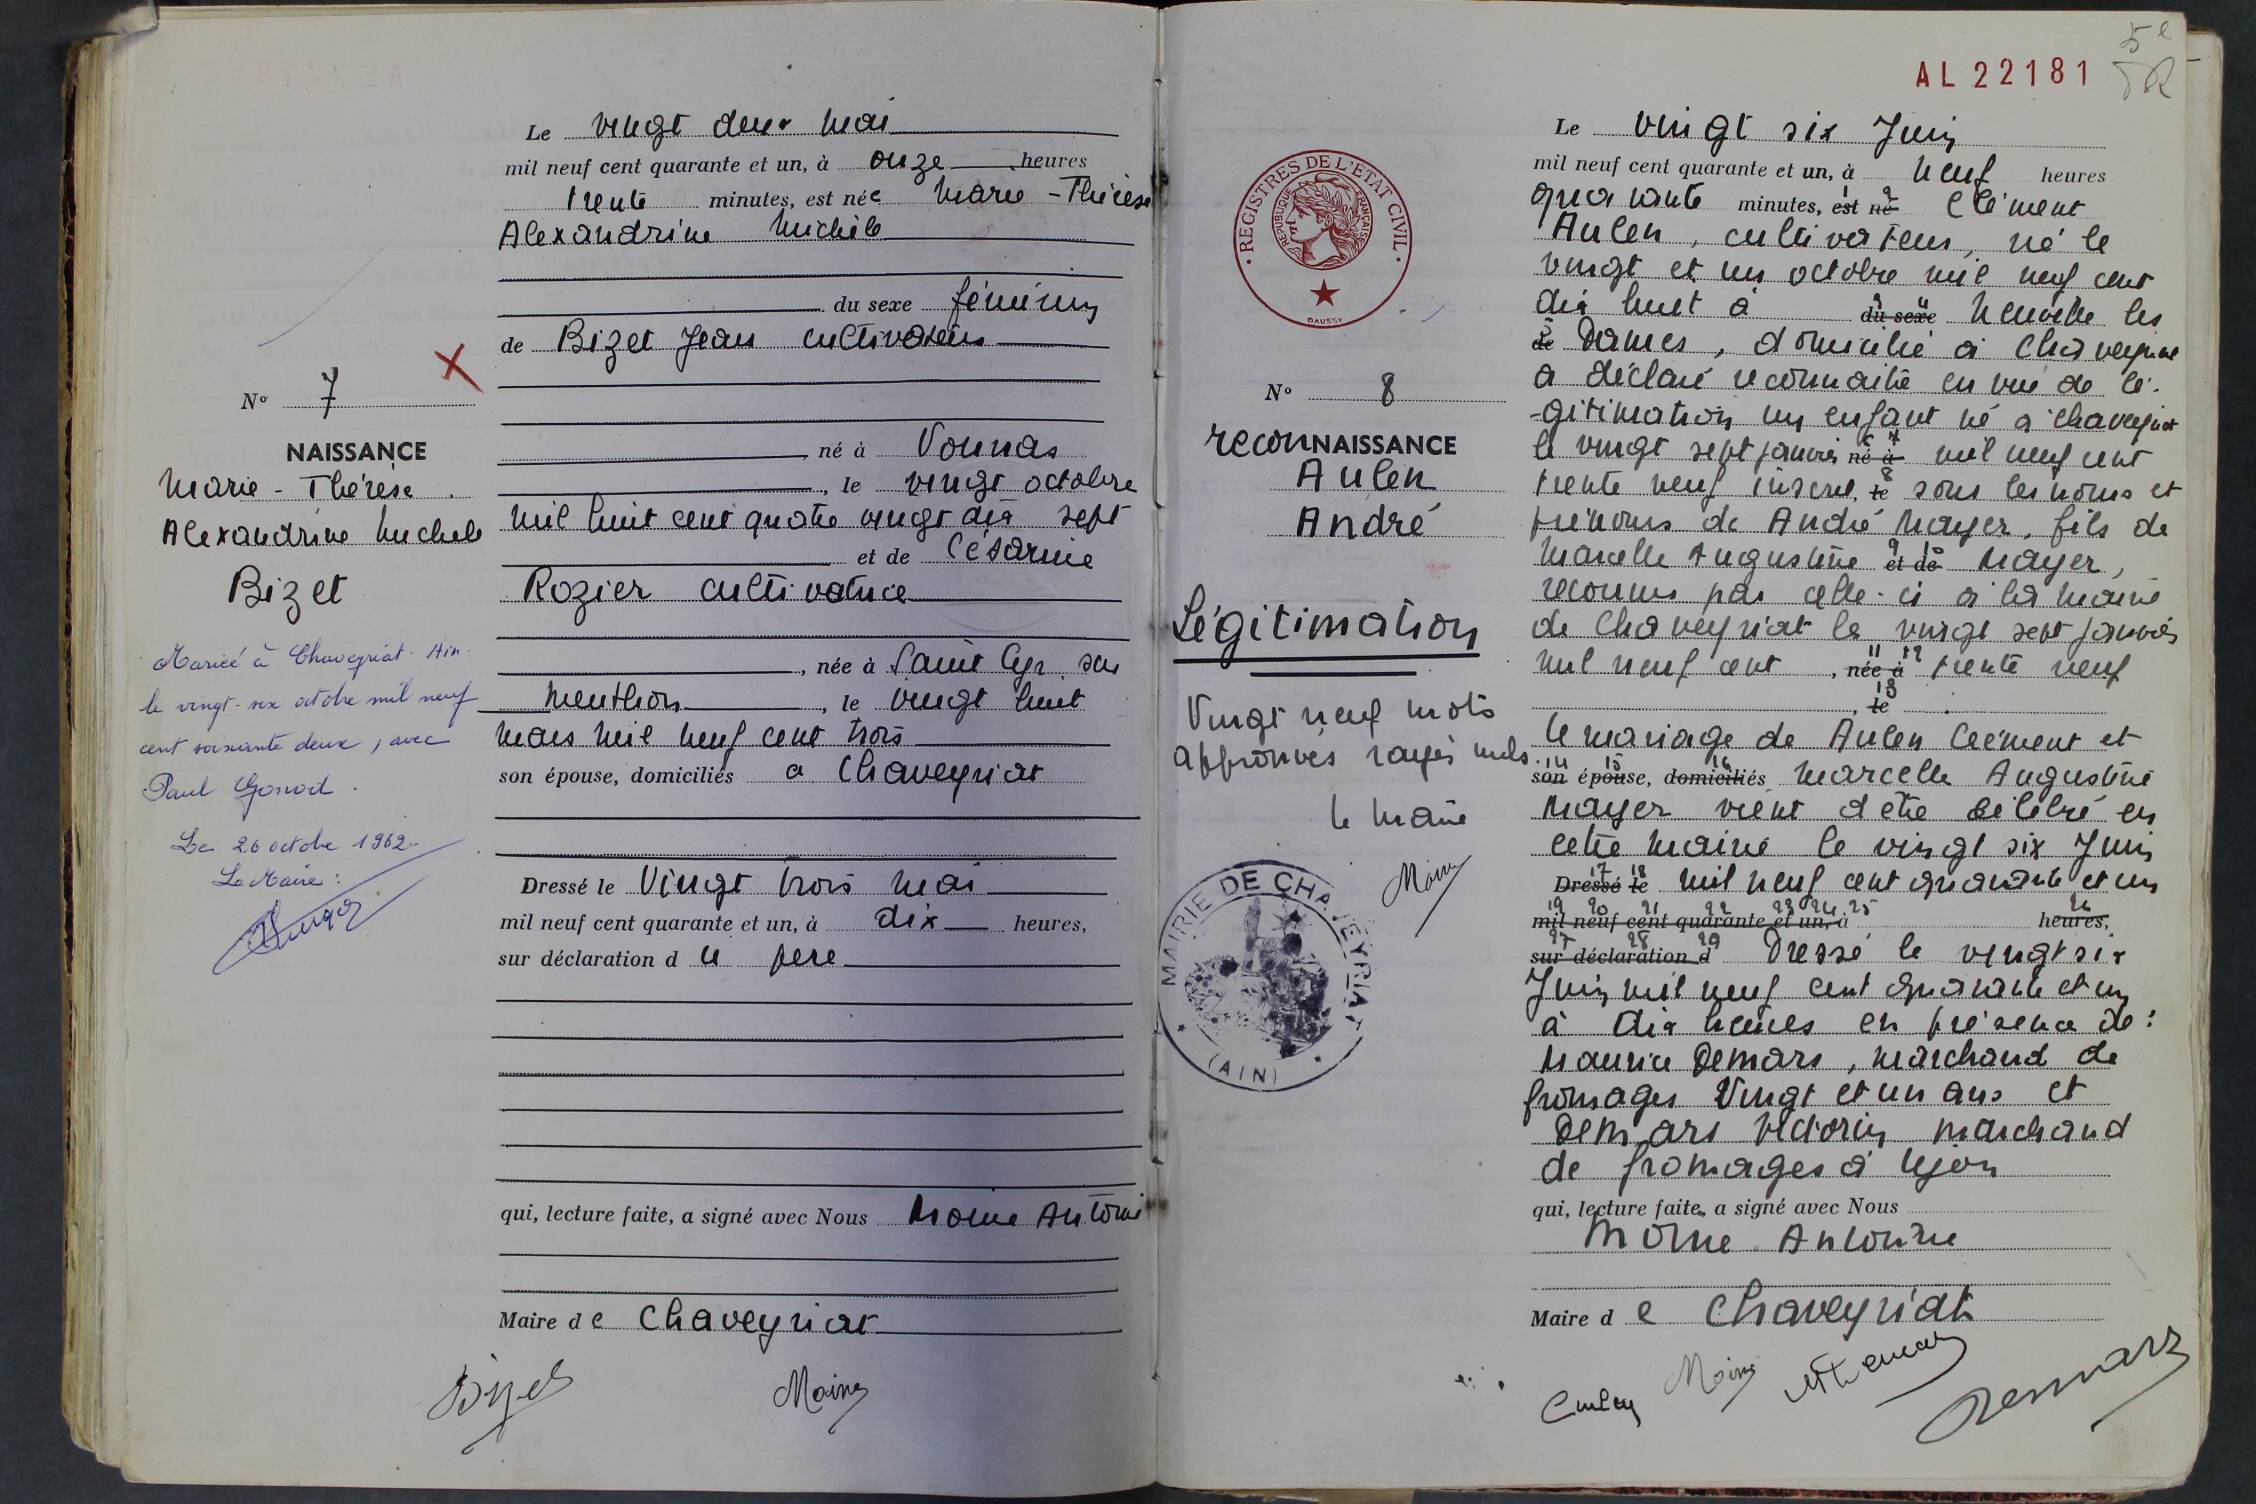 N° 7
NAISSANCE
Marie - Thérèse
Alexandrine Michele
Bizet
Mariée à Chaveyriat Ain
le vingt-six octobre mil neuf
cent soixante deux, avec
Paul Gonod.
Le 26 octobre 1962.
Le Maire :
Le vingt deux mai
mil neuf cent quarante et un, à onze heures
trente minutes, est née Marie - Thérèse
Alexandrine Michèle
du sexe féminin
de Bizet Jean cultivateur
né à Vonnas
, le vingt octobre
mil huit cent quatre vingt dix sept
et de Césarine
Rozier cultivatrice
, née à Saint Cyr sur
Menthon , le vingt huit
mars mil neuf cent trois
son épouse, domiciliés a Chaveyriat
Dressé le Vingt trois mai
mil neuf cent quarante et un, à dix heures,
sur déclaration du pere
qui, lecture faite, a signé avec Nous Moine Antoine
Maire de Chaveyriat
Bizet Moine
AL 22181
REGISTRES DE L'ÉTAT CIVIL
RÉPUBLIQUE FRANÇAISE
DAUSSY
N° 8
reconNAISSANCE
Aulen
André
Légitimation
Vingt neuf mots
approuvés rayés nuls.
le maire
Moine
MAIRIE DE CHAVEYRIAT
(AIN)
Le vingt six Juin
mil neuf cent quarante et un, à neuf heures
quarante minutes, est né Clément
Aulen, cultivateur, né le
vingt et un octobre mil neuf cent
dix huit à du sexe Neuville les
de Dames, domicilié à Chaveyriat
a déclaré reconnaitre en vue de lé-
-gitimation un enfant né à Chaveyriat
le vingt sept janvier né à mil neuf cent
trente neuf inscrit le sous les noms et
prénoms de André Mayer, fils de
Marcelle Augustine et de Mayer,
reconnu par celle-ci à la mairie
de Chaveyriat le vingt sept janvier
mil neuf cent , née à trente neuf
, le
le mariage de Aulen Clément et
son épouse, domiciliés Marcelle Augustine
Mayer vient d'être célébré en
cette mairie le vingt six Juin
Dressé le mil neuf cent quarante et un
mil neuf cent quarante et un, à heures,
sur déclaration d Dressé le vingt six
Juin mil neuf cent quarante et un
à dix heures en présence de :
Maurice Demars, marchand de
fromages Vingt et un ans et
Demars Victorin marchand
de fromages à Lyon
qui, lecture faite, a signé avec Nous
Moine Antoine
Maire de Chaveyriat
Aulen Moine Demars